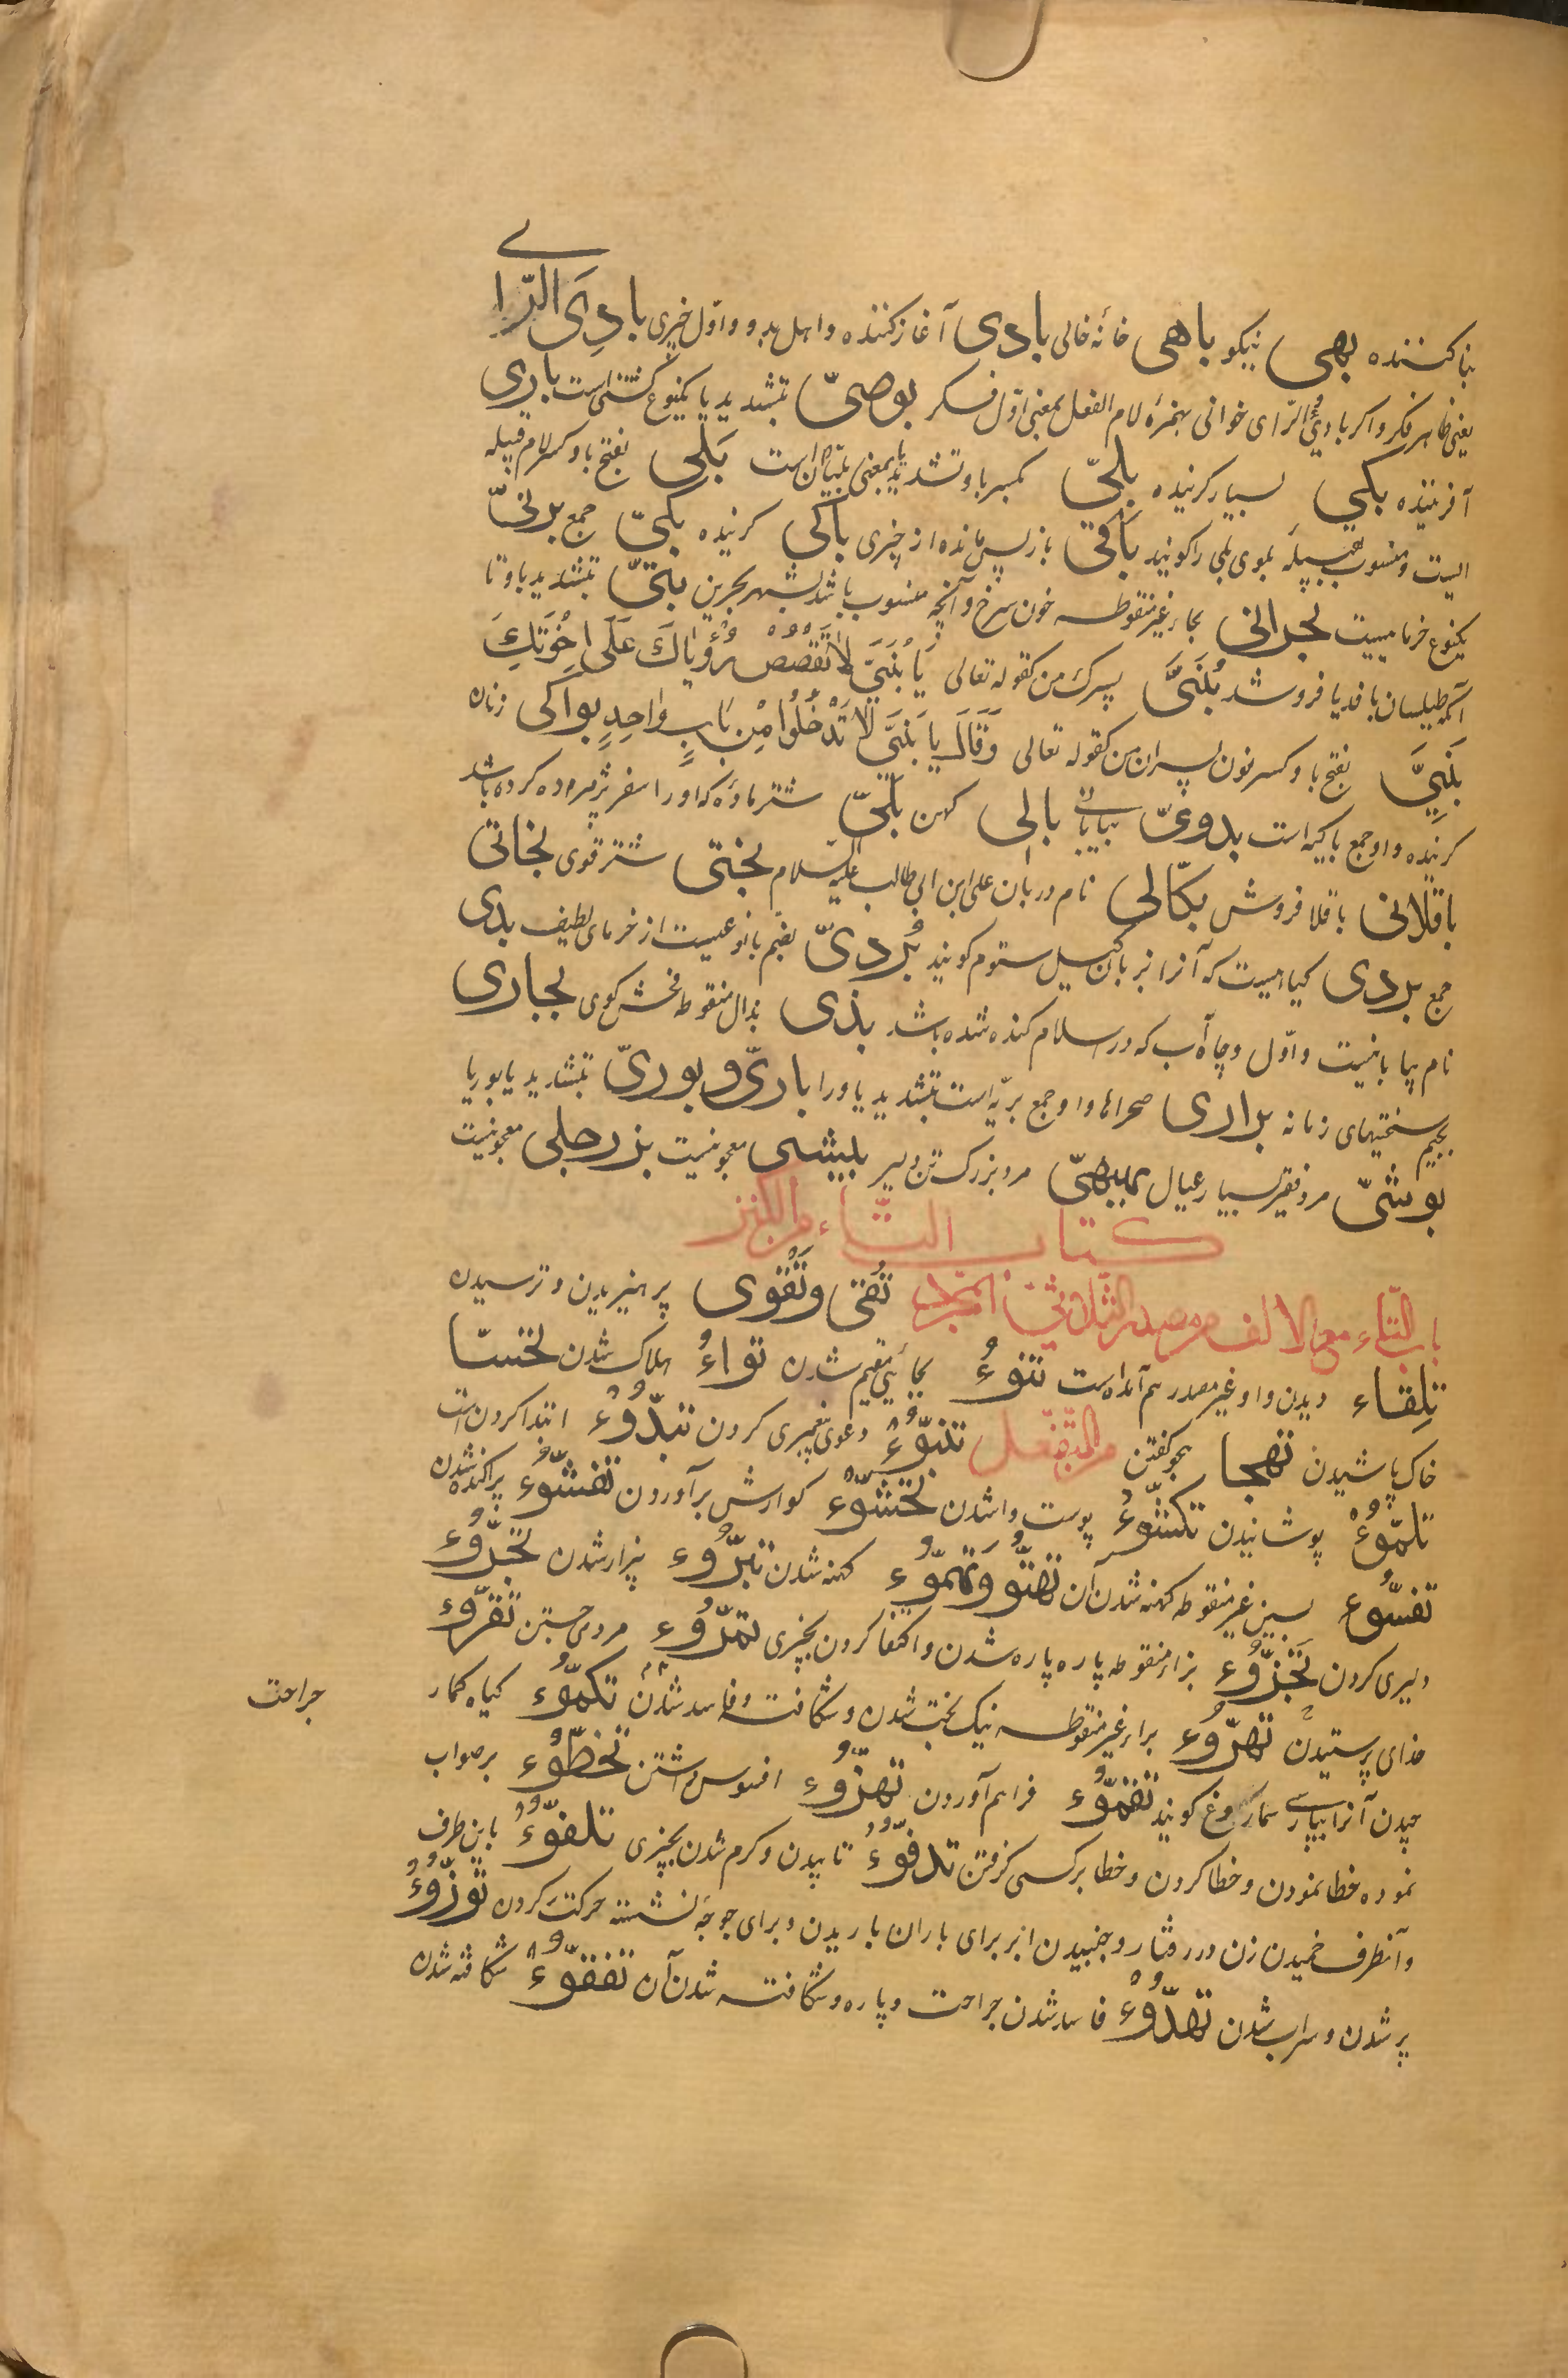 بنا کننده بهی نیکو باهی خانهٔ خالی بادی آغاز کننده و اهل بدو و اوّل چیزی بادِیَ الرّای
یعنی ظاهر فکر و اکر بادیُٔ الرّای خوانی بهمزهٔ لام الفعل بمعنی اوّل فکر بوصیّ بتشدید یا یکنوع کشتی است باری
آفریننده بکی بسیار کرینده بلیّ بکسر با و تشدید یا بمعنی بلیّان است بَلی بفتح با و کسر لام قبیله
ایست و منسوب بقبیلهٔ بلوی بلی را کویند باقی باز پس مانده از چیزی باکی کرینده بکیّ جمع برنیّ
یکنوع خرما هیست بحرانی بحاء غیر منقوطه خون سرخ و آنچه منسوب باشد بشهر بحرین بتیّ بتشدید با و تا
آنکه طیلسان بافد یا فروشد بُنَیَّ پسرک من کقوله تعالی یَا بُنَیَّ لَا تَقْصُصْ رُؤْیَاكَ عَلَی اِخْوَتِكَ
بَنِیَّ بفتح با و کسر نون پسران من کقوله تعالی وَقَالَ یَا بَنِیَّ لَا تَدْخُلُوا مِنْ بَابٍ وَاحِدٍ بواکی زنان
کرینده و او جمع باکیه است بدویّ بیابانی بالی کهن بلیّ شتر مادهٔ که او را سفر پژمرده کرده باشد
باقلانی باقلا فروش بکّالی نام دربان علی ابن ابی طالب علیه السلام بختی شتر قوی بخاتی
جمع بردی کیا هیست که آنرا بزبان کیل ستوم کویند بُردیّ بضم با نوعیست از خرمای لطیف بدی
نام بیابانیست و اوّل و چاه آب که در اسلام کنده شده باشد بذی بذال منقوطه فحش کوی بجاری
بجیم سختیهای زمانه براری صحراها و او جمع بریّه است بتشدید یا و را باریّ و بوریّ بتشدید یا بوریا
بوشیّ مرد فقیر بسیار عیال بیهیّ مرد بزرک تن دلیر بلیشی معجونیست بزرجلی معجونیست
کتاب التّاء من الکنز
باب التّاء مع الالف من مصدر الثّلاثی المجرّد تُقی وتَقْوی پرهیزیدن و ترسیدن
تِلِقاء دیدن و او غیر مصدر هم آمده است تنوءُ بجائی مقیم شدن تواءُ هلاک شدن تختسّا
خاک پاشیدن تهجا هجو کفتن من التّفعل تنبّوءُ دعوی پیغمبری کردن تبدّوءُ ابتدا کردن است
تلمّوءُ پوشانیدن تکشّوءُ پوست وا شدن تجشّوءُ کوارش برآوردن تفشّوءُ پراکنده شدن
تفسّوء بسین غیر منقوطه کهنه شدن آن تهتّو وتهمّوء کهنه شدن تبرّوء بیزار شدن تجرّوء
دلیری کردن تجزّوء بزاء منقوطه پاره پاره شدن و اکتفا کردن بچیزی تمرّوء مردمی جستن تقرّوء
خدای پرستیدن تهرّوء براء غیر منقوطه نیک پخت شدن و شکافته و فاسد شدن تکمّوء کیاه کمار
چیدن آنرا بپارسی سماروغ کویند تقمّوء فراهم آوردن تهزّوء افسوس داشتن تخطّوء بر صواب
نموده خطا نمودن و خطا کردن و خطا بر کسی کرفتن تدفّوءُ تابیدن و کرم شدن بچیزی تلفّوءُ باین طرف
و آنطرف خمیدن زن در رفتار و جنبیدن ابر برای باران باریدن و برای جوجهٔ نشسته حرکت کردن توزّوءُ
پر شدن و سیراب شدن تهدّوءُ فاسد شدن جراحت و پاره و شکافته شدن آن تفقّوءُ شکافته شدن
جراحت